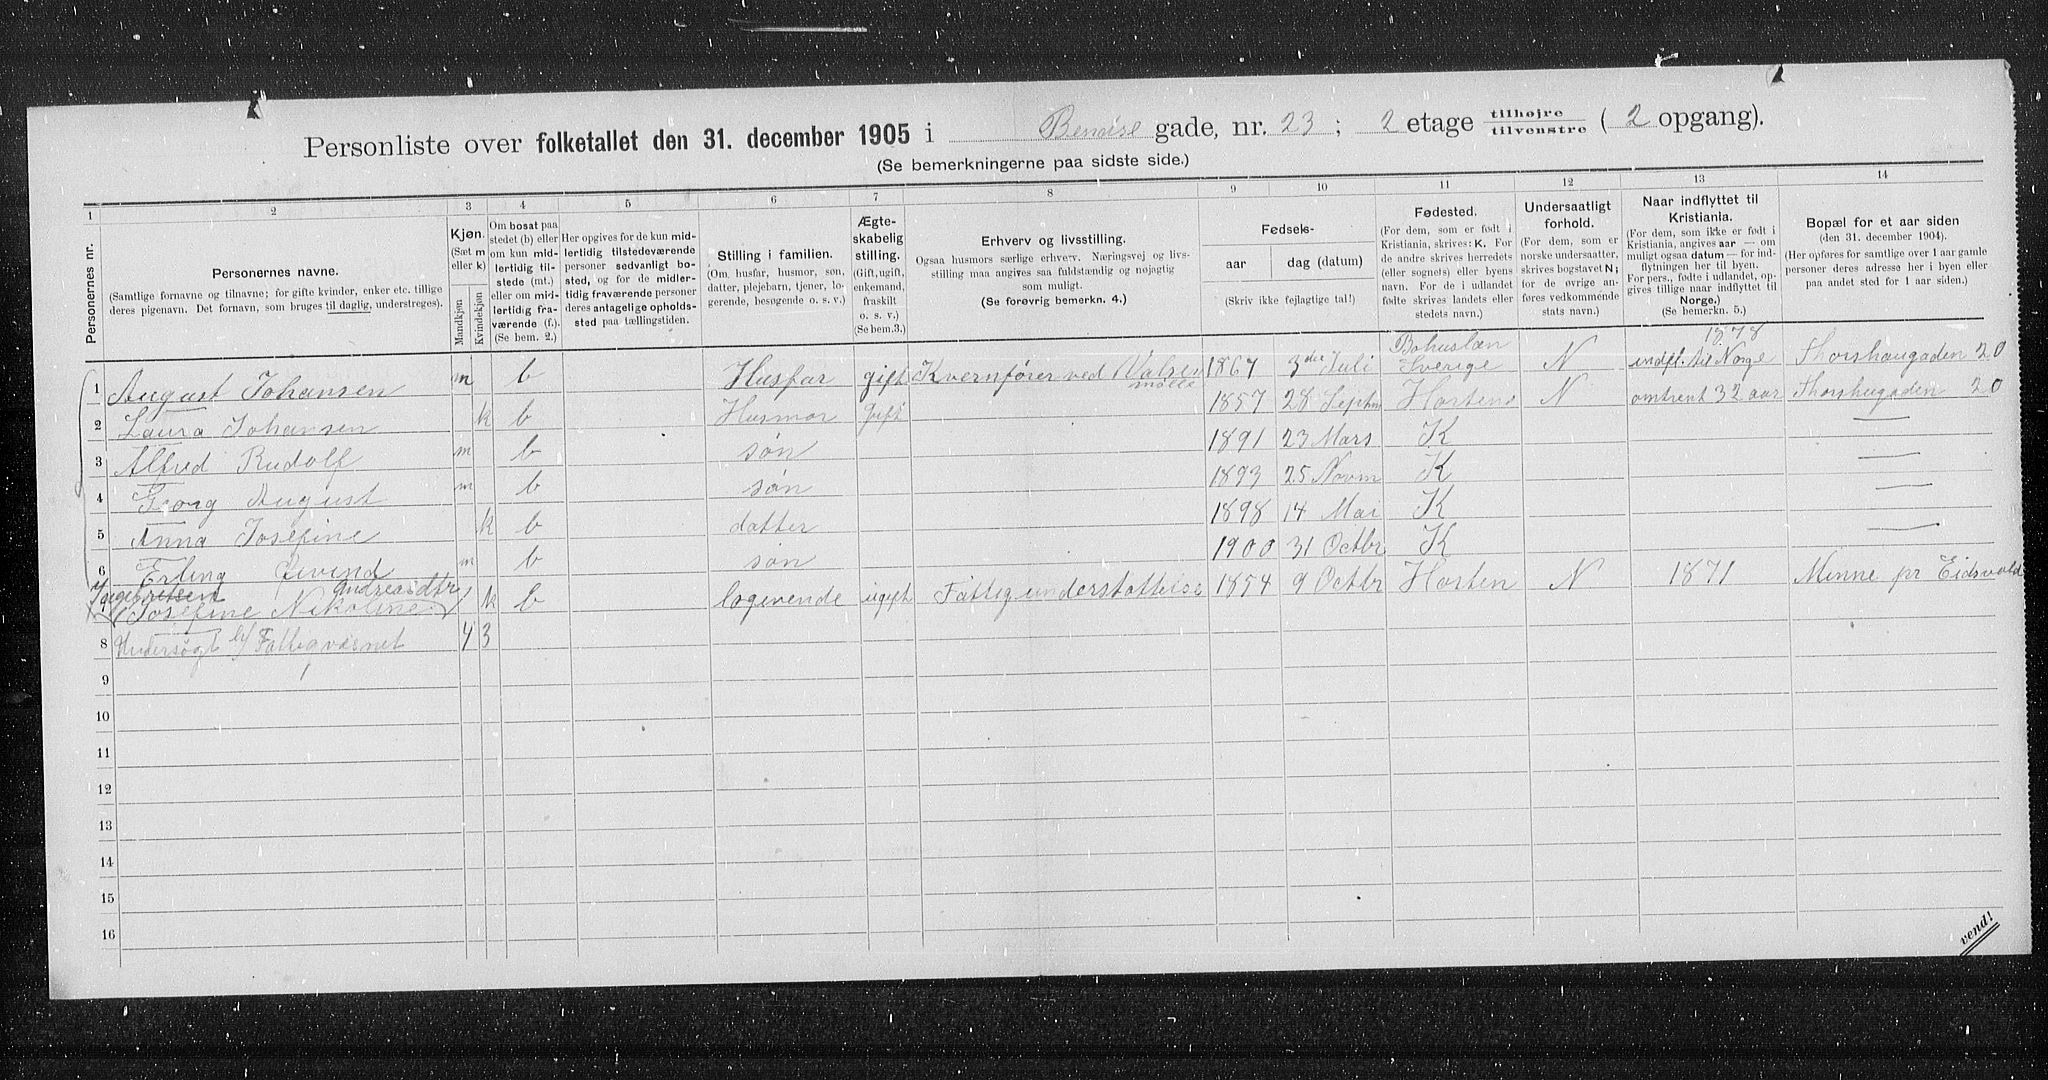 Personliste over folketallet den 31. december 1905 i Bensise gade, nr. 23; 2 etage tilhøjre tilvenstre (2 opgang).
(Se bemerkningerne paa sidste side.)
1 2 3 4 5 6 7 8 9 10 11 12 13 14
Personernes nr.
Personernes navne.
(Samtlige fornavne og tilnavne; for gifte kvinder, enker etc. tillige
deres pigenavn. Det fornavn, som bruges til daglig, understreges).
Kjøn.
(Sæt m
eller k)
Mandkjøn
Kvindekjøn
Om bosat paa
stedet (b) eller
om kun mid-
lertidig til-
stede (mt.)
eller om mi-
lertidig fra-
værende (f.).
(Se bem. 2.)
Her opgives for de kun mid-
lertidig tilstedeværende
personer sedvanligt bo-
sted, og for de midler-
tidig fraværende personer
deres antagelige opholds-
sted paa tællingstiden.
Stilling i familien.
(Om husfar, husmor, søn,
datter, plejebarn, tjener, lo-
gerende, besøgende o. s. v.)
Ægte-
skabelig
stilling.
(Gift, ugift,
enkemand,
fraskilt
o. s. v.)
(Se bem.3.)
Erhverv og livsstilling.
Ogsaa husmors særlige erhverv. Næringsvej og livs-
stilling maa angives saa fuldstændig og nøjagtig
som muligt.
(Se forøvrig bemerkn. 4.)
Fødsels-
aar dag (datum)
(Skriv ikke fejlagtige tal!)
Fødested.
(For dem, som er født i
Kristiania, skrives: K. For
de andre skrives herredets
(eller sognets) eller byens
navn. For de i udlandet
fødte skrives landets eller
stedets navn.)
Undersaatligt
forhold.
(For dem, som er
norske undersaatter,
skrives bogstavet N;
for de øvrige an-
føres vedkommende
stats navn.)
Naar indflyttet til
Kristiania.
(For dem, som ikke er født i
Kristiania, angives aar — om
muligt ogsaa datum — for ind-
flytningen her til byen.
For pers., fødte i udlandet, op-
gives tillige naar indflyttet til
Norge.)
(Se bemerkn. 5.)
Bopæl for et aar siden
(den 31. december 1904).
(Her opføres for samtlige over 1 aar gamle
personer deres adresse her i byen eller
paa andet sted for 1 aar siden.)
1 August Johansen m b Husfar gift Kvernfører ved Valsen mølle 1867 3die Juli Bohuslæn Sverige N 1878 indfl. til Norge Thorshaugaden 20
2 Laura Johansen k b Husmor gift 1857 28 Septm Hortens N omtrent 32 aar Thorshugaden 20
3 Alfred Rudolf m b søn 1891 23 Mars K —
4 Georg August m b søn 1893 25 Novm K —
5 Anna Josefine k b datter 1898 14 Mai K —
6 Erling Eivind m b søn 1900 31 Octbr K —
7 Andreasdtr
(Josefine Nikoline) k b logerende ugift Fattigunderstøttelse 1854 9 Octbr Horten N 1871 Minne pr Eidsvold
8 Undersøgt v/ Fattigvæsnet 4 3
9
10
11
12
13
14
15
16
vend!